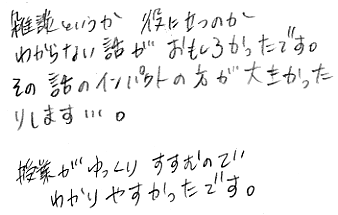 雑談というか 役に立つのか
わからない話が おもしろかったです。
その話のインパクトの方が大きかった
りします…。
授業がゆっくりすすむので
わかりやすかったです。